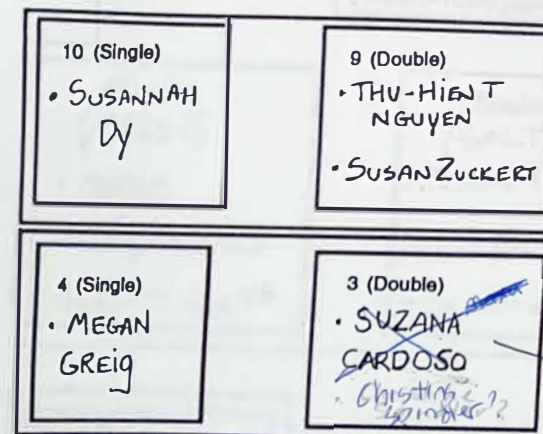 10 (Single)
• SUSANNAH
DY
9 (Double)
• THU-HIEN T
NGUYEN
• SUSAN ZUCKERT
4 (Single)
• MEGAN
GREIG
3 (Double)
• SUZANA
CARDOSO